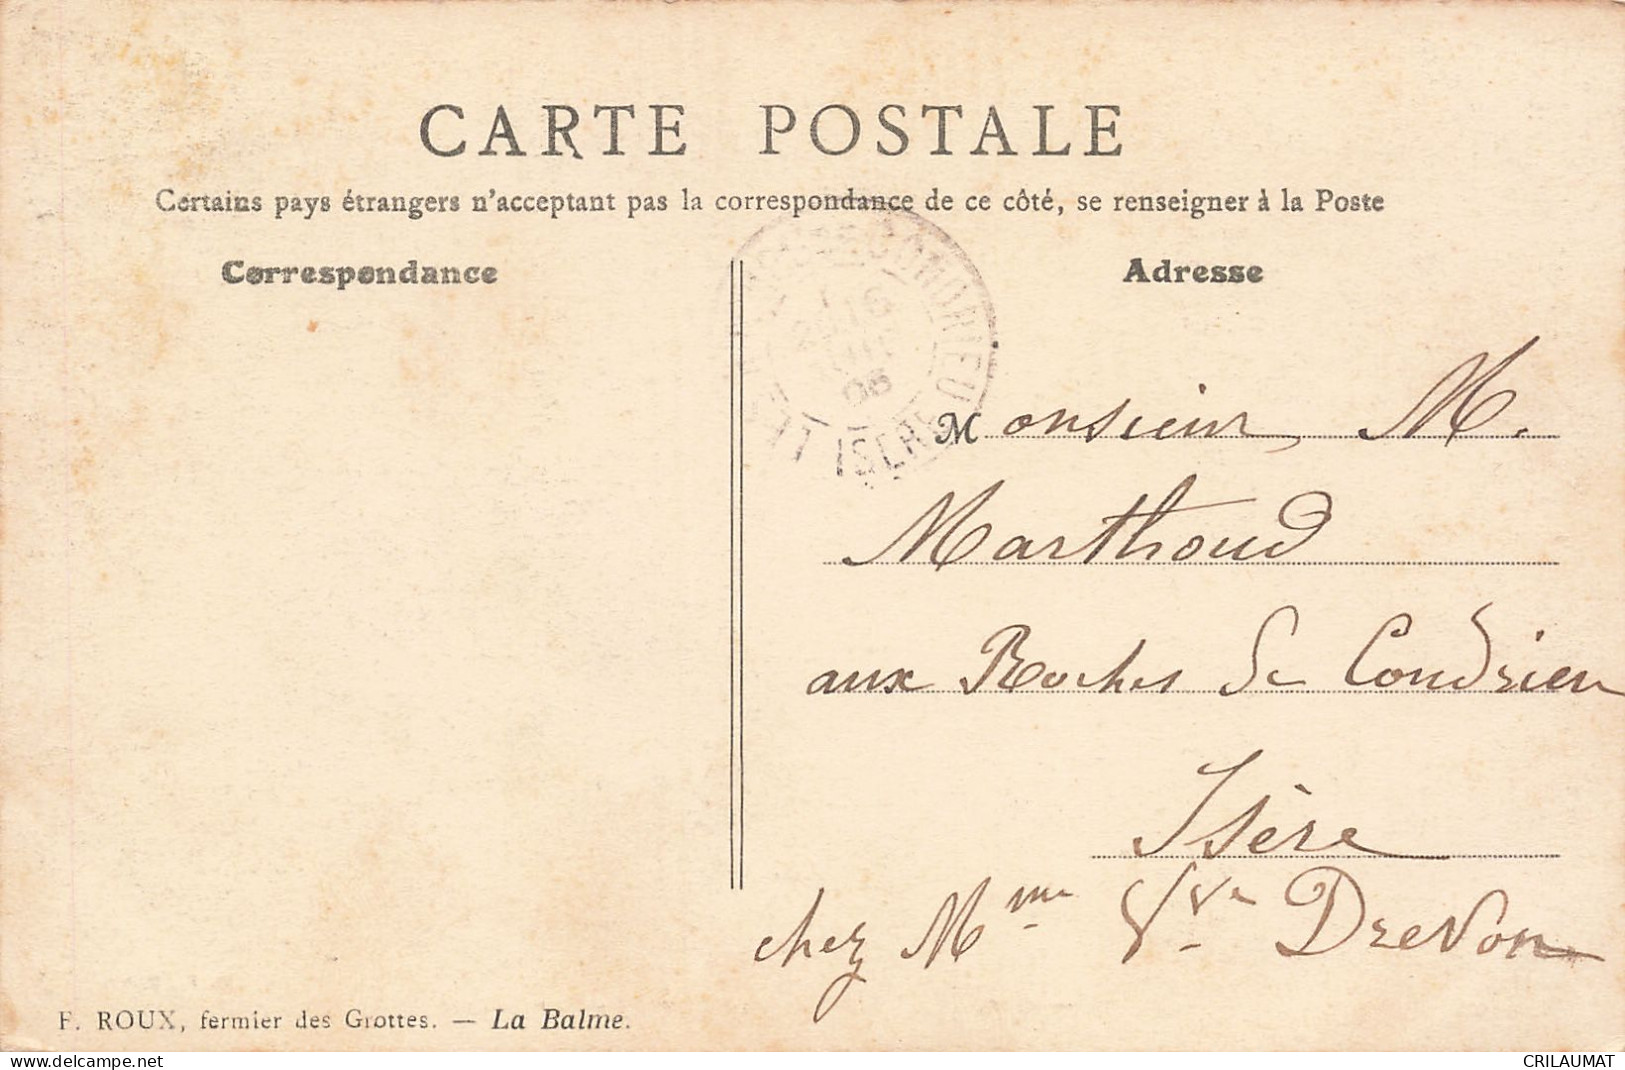 CARTE POSTALE
Certains pays étrangers n'acceptant pas la correspondance de ce côté, se renseigner à la Poste
Correspondance
Adresse
CRÉMIEU
16
06
ISERE
Monsieur M.
Marthoud
aux Roches de Condrieu
Isère
chez Mme Vve Drevon
F. ROUX, fermier des Grottes. — La Balme.
www.delcampe.net
CRILAUMAT